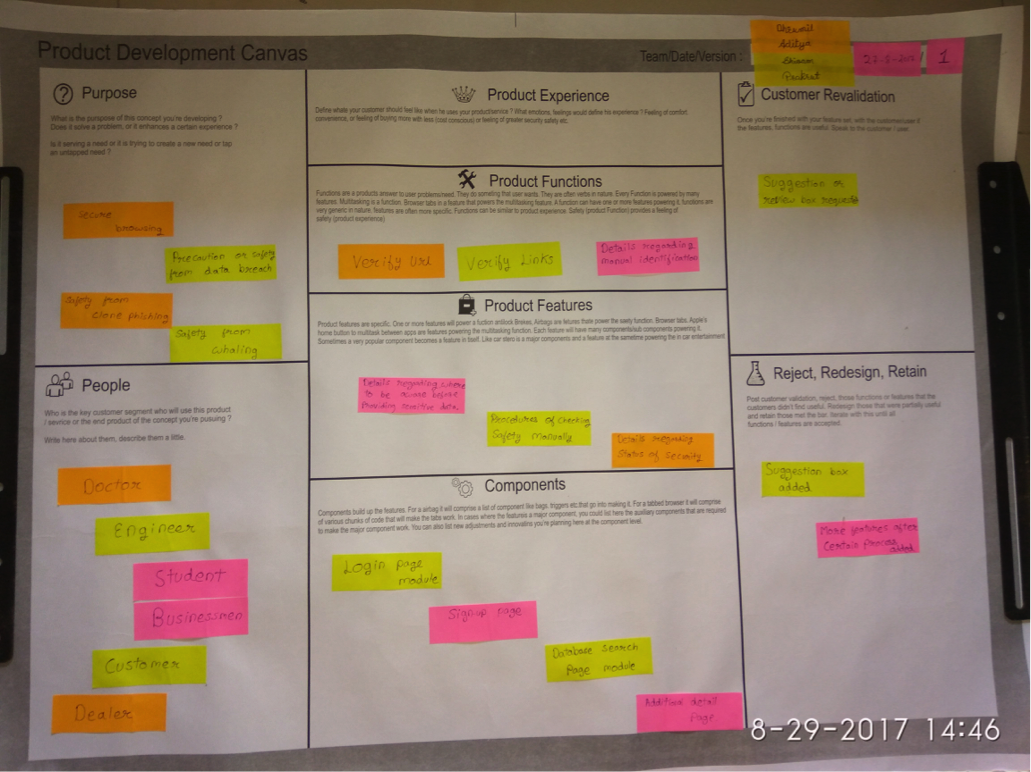 Product Development Canvas
Team/Date/Version :
Aditya
1
Purpose
What is the purpose of this concept you're developing ?
Does it solve a problem, or it enhances a certain experience ?
Is it serving a need or it is trying to create a new need or tap
an untapped need ?
Secure
browsing
Precaution or safety
from data breach
Safety from
Clone phishing
Safety from
whaling
People
Who is the key customer segment who will use this product
/ service or the end product of the concept you're pusuing ?
Write here about them, describe them a little.
Doctor
Engineer
Student
Businessmen
Customer
Dealer
Product Experience
Define whate your customer should feel like when he uses your product/service ? What emotions, feelings would define his experience ? Feeling of comfort,
convenience, or feeling of buying more with less (cost conscious) or feeling of greater security safety etc.
Product Functions
Functions are a products answer to user problems/need. They do someting that user wants. They are often verbs in nature. Every Function is powered by many
features. Multitasking is a function. Browser tabs in a feature that powers the multitasking feature. A function can have one or more features powering it, functions are
very generic in nature, features are often more specific. Functions can be similar to product experience. Safety (product Function) provides a feeling of
safety (product experience)
Verify Url
Verify Links
Details regarding
manual identification
Product Features
Product features are specific. One or more features will power a fuction antilock Brakes, Airbags are fetures thate power the saety function. Browser tabs, Apple's
home button to multitask between apps are features powering the multitasking function. Each feature will have many components/sub components powering it.
Sometimes a very popular component becomes a feature in itself. Like car stero is a major components and a feature at the sametime powering the in car entertainment
Details regarding where
to be secure before
Providing sensitive data.
Procedures of checking
Safety manually
Details regarding
Status of security
Components
Components build up the features. For a airbag it will comprise a list of component like bags, triggers etc that go into making it. For a tabbed browser it will comprise
of various chunks of code that will make the tabs work. In cases where the features a major component, you could list here the auxiliary components that are required
to make the major component work. You can also list new adjustments and innovatins you're planning here at the component level.
Login page
module
Signup page
Database search
Page module
Additional detail
Page
Customer Revalidation
Once you're finished with your feature set, with the customer/user if
the features, functions are useful. Speak to the customer / user.
Suggestion or
review box requests
Reject, Redesign, Retain
Post customer validation, reject, those functions or features that the
customers didn't find useful. Redesign those that were partially useful
and retain those met the bar. Iterate with this until all
functions / features are accepted.
Suggestion box
added
More features after
Certain process
added
8-29-2017 14:46